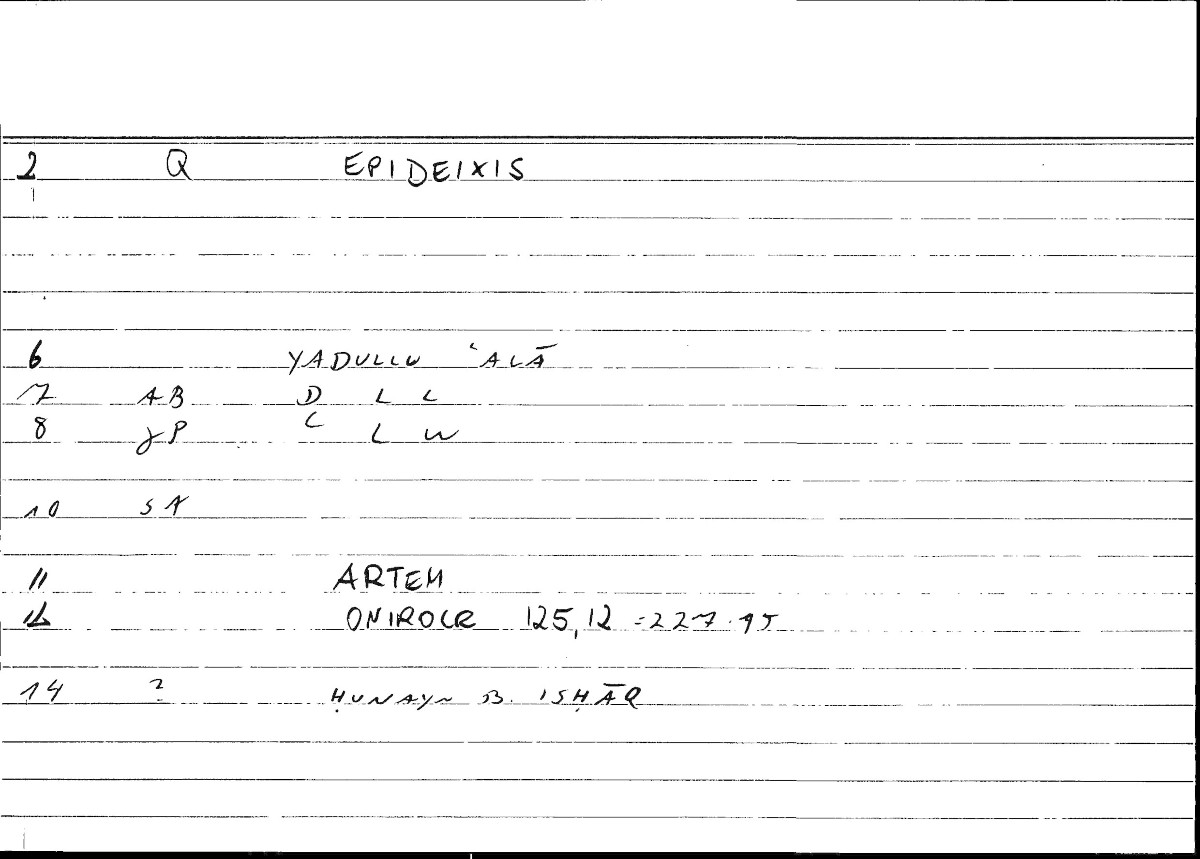 2 Q EPIDEIXIS
6 YADULLU ʿALĀ
7 AB D L L
8 JP C L W
10 SA
11 ARTEM
12 ONIROCR 125,12 = 227.15
14 ? ḤUNAYN B. ISḤĀQ